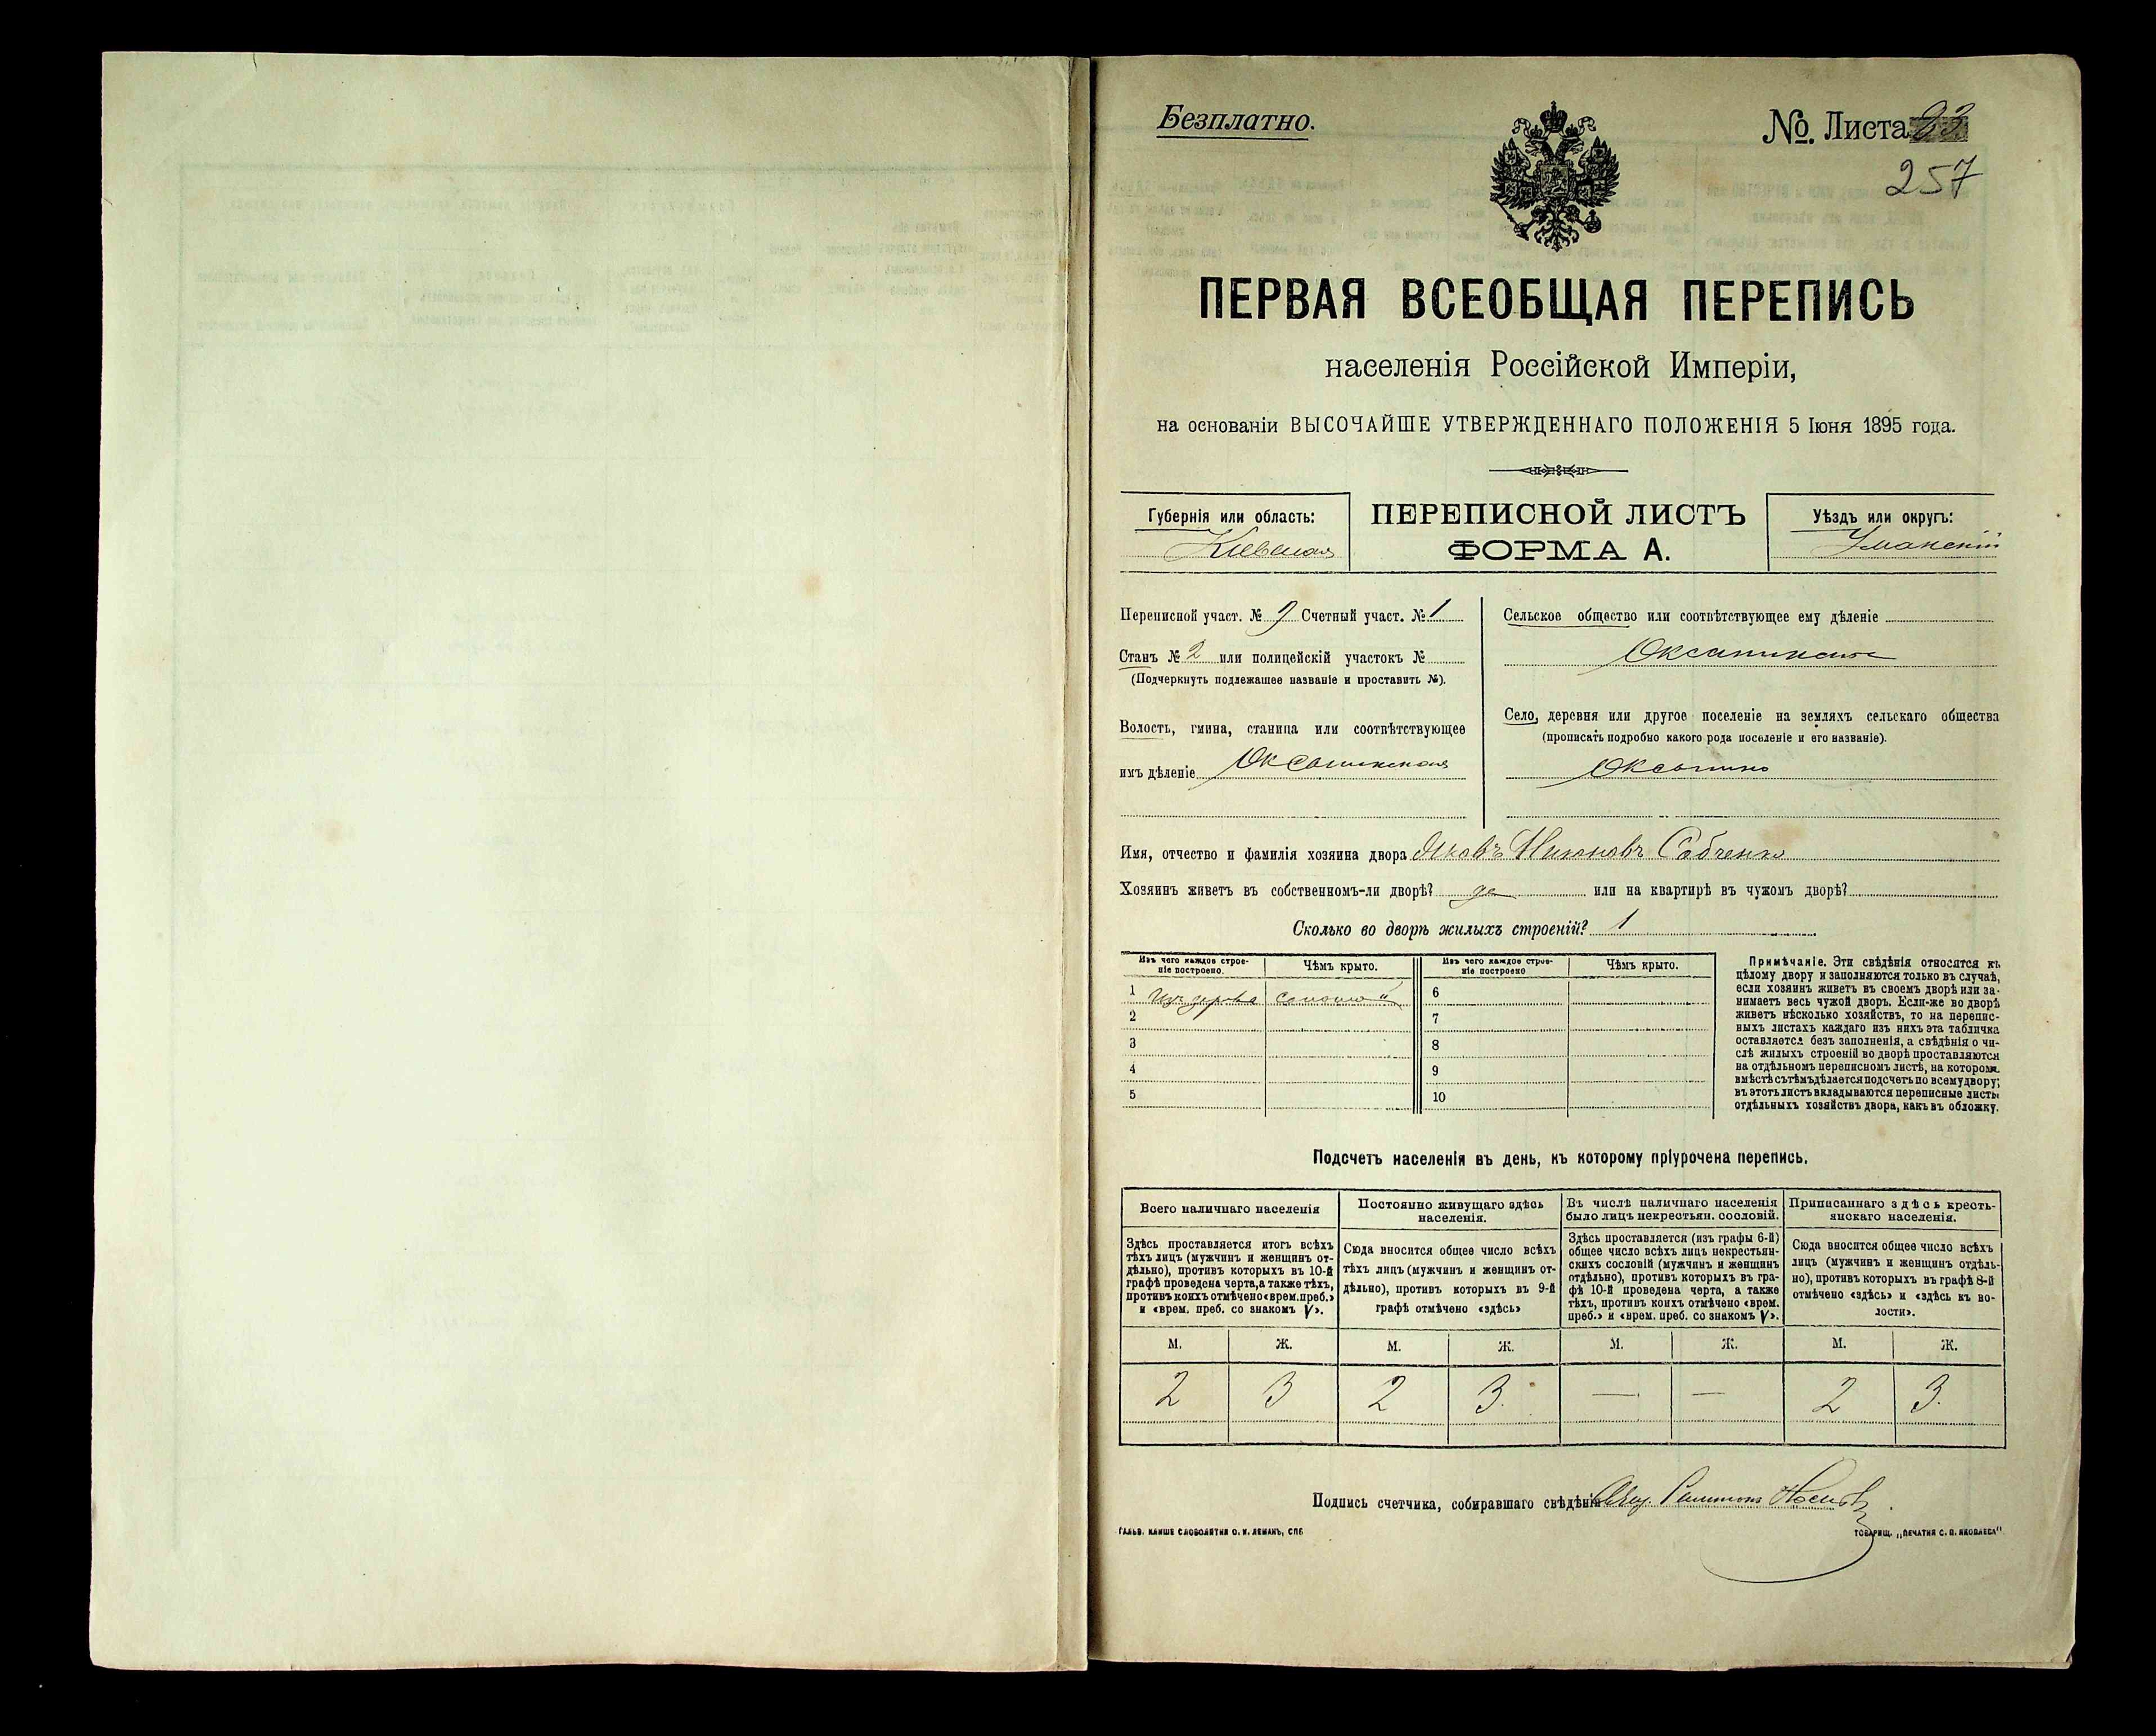 Безплатно.
No. Листа 93
257
ПЕРВАЯ ВСЕОБЩАЯ ПЕРЕПИСЬ
населенія Россійской Имперіи,
на основаніи ВЫСОЧАЙШЕ УТВЕРЖДЕННАГО ПОЛОЖЕНІЯ 5 Іюня 1895 года.
Губернія или область:
Кіевская
ПЕРЕПИСНОЙ ЛИСТЪ
ФОРМА А.
Уѣздъ или округъ:
Уманскій
Переписной участ. № 9 Счетный участ. № 1
Станъ № 2 или полицейскій участокъ №
(Подчеркнуть подлежащее названіе и проставить №).
Волость, гмина, станица или соотвѣтствующее
имъ дѣленіе Оксанинская
Сельское общество или соотвѣтствующее ему дѣленіе
Оксанинское
Село, деревня или другое поселеніе на земляхъ сельскаго общества
(прописать подробно какого рода поселеніе и его названіе).
Оксанино
Имя, отчество и фамилія хозяина двора Яковъ Никоновъ Собченко
Хозяинъ живетъ въ собственномъ-ли дворѣ? да или на квартирѣ въ чужомъ дворѣ?
Сколько во дворѣ жилыхъ строеній? 1
Изъ чего каждое строе-
ніе построено.
Чѣмъ крыто.
Изъ чего каждое строе-
ніе построено
Чѣмъ крыто.
1 Изъ дерева соломой 6
2 7
3 8
4 9
5 10
Примѣчаніе. Эти свѣдѣнія относятся къ
цѣлому двору и заполняются только въ случаѣ,
если хозяинъ живетъ въ своемъ дворѣ или за-
нимаетъ весь чужой дворъ. Если-же во дворѣ
живетъ нѣсколько хозяйствъ, то на перепис-
ныхъ листахъ каждаго изъ нихъ эта табличка
оставляется безъ заполненія, а свѣдѣнія о чи-
слѣ жилыхъ строеній во дворѣ проставляются
на отдѣльномъ переписномъ листѣ, на которомъ
вмѣстѣ съ тѣмъ дѣлается подсчетъ по всему двору;
въ этотъ листъ вкладываются переписные листы
отдѣльныхъ хозяйствъ двора, какъ въ обложку.
Подсчетъ населенія въ день, къ которому пріурочена перепись.
Всего наличнаго населенія
Здѣсь проставляется итогъ всѣхъ
тѣхъ лицъ (мужчинъ и женщинъ от-
дѣльно), противъ которыхъ въ 10-й
графѣ проведена черта, а также тѣхъ,
противъ коихъ отмѣчено «врем. преб.»
и «врем. преб. со знакомъ V».
Постоянно живущаго здѣсь
населенія.
Сюда вносится общее число всѣхъ
тѣхъ лицъ (мужчинъ и женщинъ от-
дѣльно), противъ которыхъ въ 9-й
графѣ отмѣчено «здѣсь»
Въ числѣ наличнаго населенія
было лицъ некрестьян. сословій.
Здѣсь проставляется (изъ графы 6-й)
общее число всѣхъ лицъ некрестьян-
скихъ сословій (мужчинъ и женщинъ
отдѣльно), противъ которыхъ въ гра-
фѣ 10-й проведена черта, а также
тѣхъ, противъ коихъ отмѣчено «врем.
преб.» и «врем. преб. со знакомъ V».
Приписаннаго здѣсь кресть-
янскаго населенія.
Сюда вносится общее число всѣхъ
лицъ (мужчинъ и женщинъ отдѣль-
но), противъ которыхъ въ графѣ 8-й
отмѣчено «здѣсь» и «здѣсь къ во-
лости».
М. Ж. М. Ж. М. Ж. М. Ж.
2 3 2 3. — — 2 3.
Подпись счетчика, собиравшаго свѣдѣнія
ГАЛЬВ. КЛИШЕ СЛОВОЛИТНИ О. И. ЛЕМАНЪ, СПБ
ТОВАРИЩ. „ПЕЧАТНЯ С. П. ЯКОВЛЕВА"